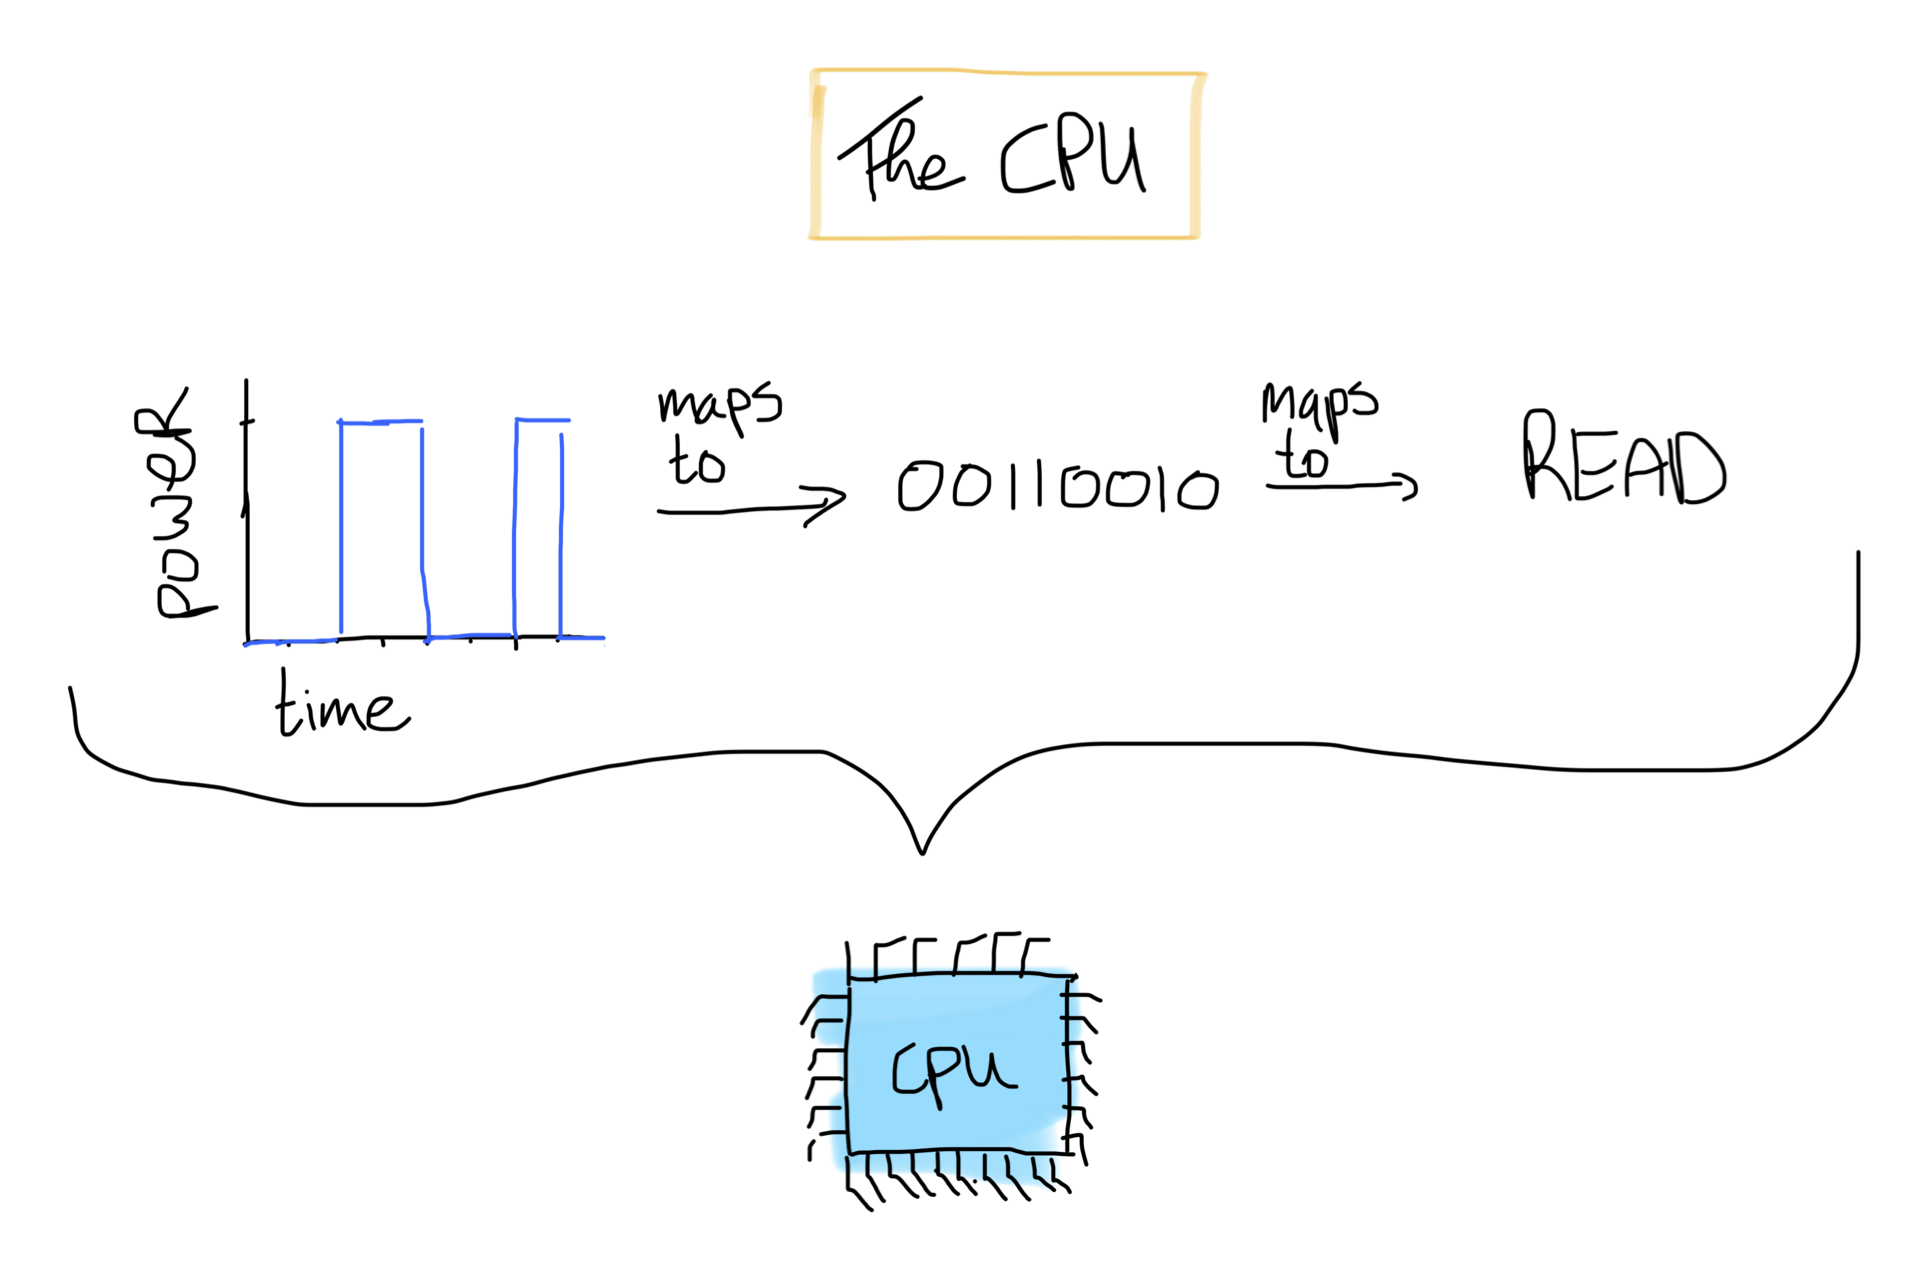 The CPU
power
time
maps
to
00110010
maps
to
READ
CPU